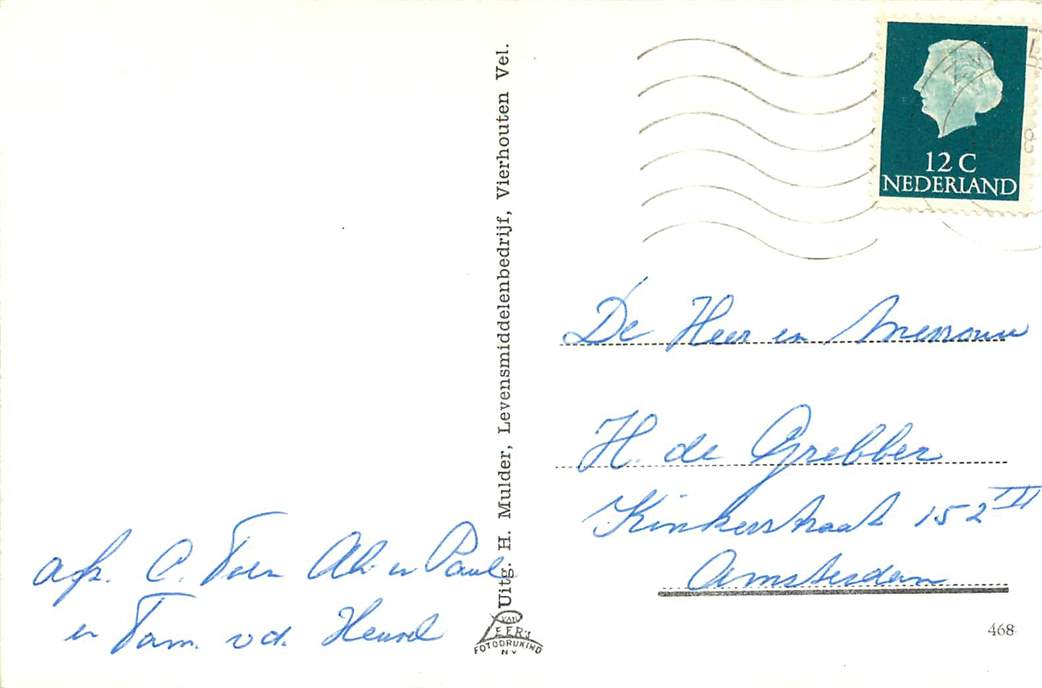 afz. C. Toen Ali en Paul
en Fam. v.d. Heuvel
Uitg. H. Mulder, Levensmiddelenbedrijf, Vierhouten Vel.
VAN
LEER'S
FOTODRUKIND
N V
12 C
NEDERLAND
De Heer en Mevrouw
H. de Grebber
Kinkerstraat 152 II
Amsterdam
468